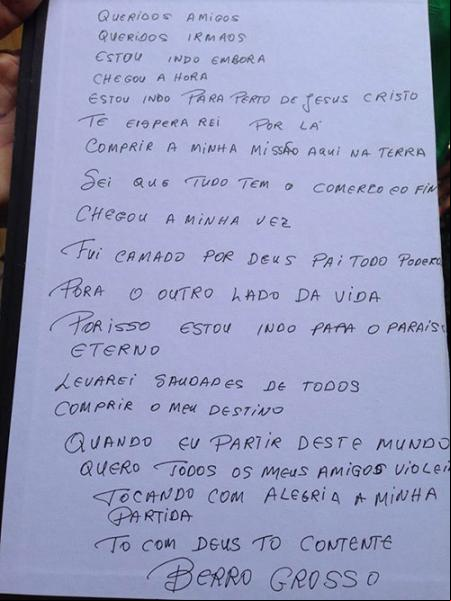 QUERIDOS AMIGOS
QUERIDOS IRMAOS
ESTOU INDO EMBORA
CHEGOU A HORA
ESTOU INDO PARA PERTO DE JESUS CRISTO
TE EISPERA REI POR LÁ
COMPRIR A MINHA MISSÃO AQUI NA TERRA
SEI QUE TUDO TEM O COMERCO EO FIN
CHEGOU A MINHA VEZ
FUI CAMADO POR DEUS PAI TODO PODERO
PORA O OUTRO LADO DA VIDA
PORISSO ESTOU INDO PAPA O PARAIS
ETERNO
LEVAREI SAUDADES DE TODOS
COMPRIR O MEU DESTINO
QUANDO EU PARTIR DESTE MUNDO
QUERO TODOS OS MEUS AMIGOS VIOLEI
TOCANDO COM ALEGRIA A MINHA
PARTIDA
TO COM DEUS TO CONTENTE
BERRO GROSSO